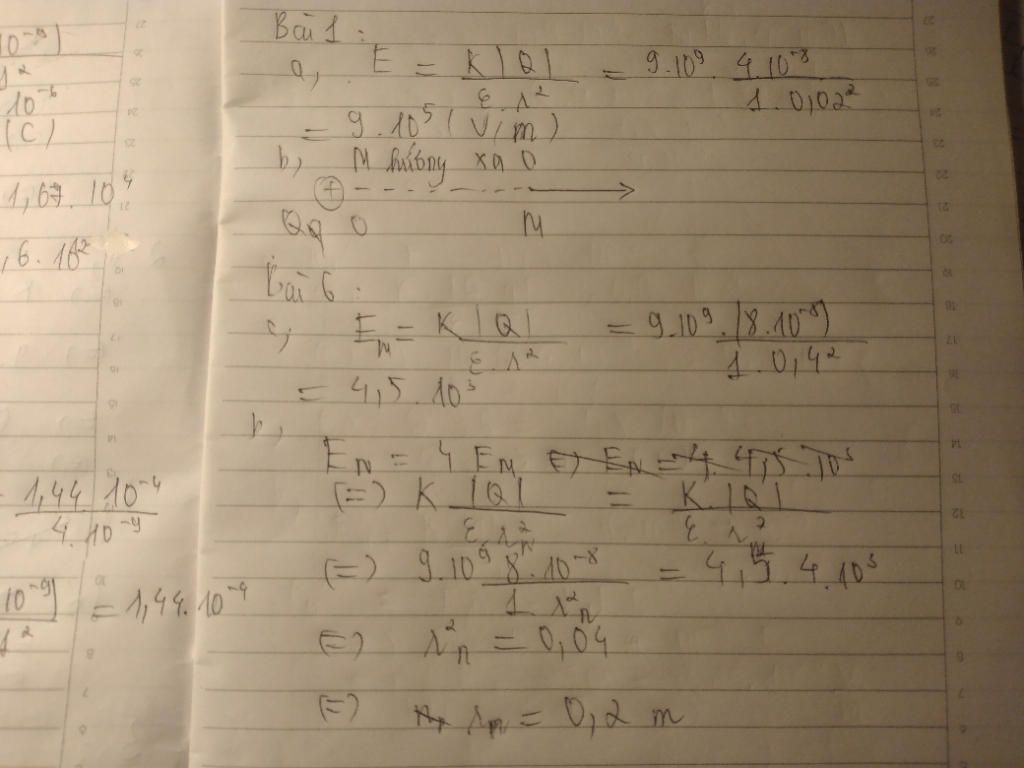 10⁻⁹|
1²
10⁻⁶
(C)
1,67.10⁴
,6.10²
1,44.10⁻⁴
4.10⁻⁹
10⁻⁹| = 1,44.10⁻⁴
1²
Bài 1:
a, E = K|Q| / ε.r² = 9.10⁹. 4.10⁻⁸ / 1.0,02²
= 9.10⁵ (V/m)
b, M hướng xa O
+
Qq O M
Bài 6:
c, E_M = K|Q| / ε.r² = 9.10⁹.|8.10⁻⁸| / 1.0,4²
= 4,5.10³
b,
E_N = 4 E_M (=) E_N = 4.4,5.10³
(=) K.|Q| / ε.r_n² = K.|Q| / ε.r_m²
(=) 9.10⁹ 8.10⁻⁸ / 1 r_n² = 4,5.4.10³
(=) r_n² = 0,04
(=) r_m = 0,2 m